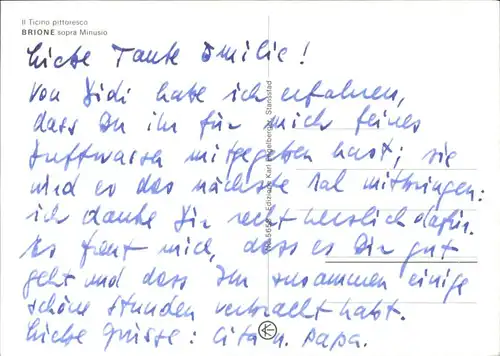 Il Ticino pittoresco
BRIONE sopra Minusio
Liebe Tante Emilie!
Von Didi habe ich erfahren,
dass Du ihr für mich feines
Duftwasser mitgegeben hast; sie
wird es das nächste Mal mitbringen:
ich danke Dir recht herzlich dafür.
Es freut mich, dass es Dir gut
geht und dass Ihr zusammen einige
schöne Stunden verbracht habt.
Liebe Grüsse: Cita u. Papa.
Edizione Karl Engelberger, Stansstad